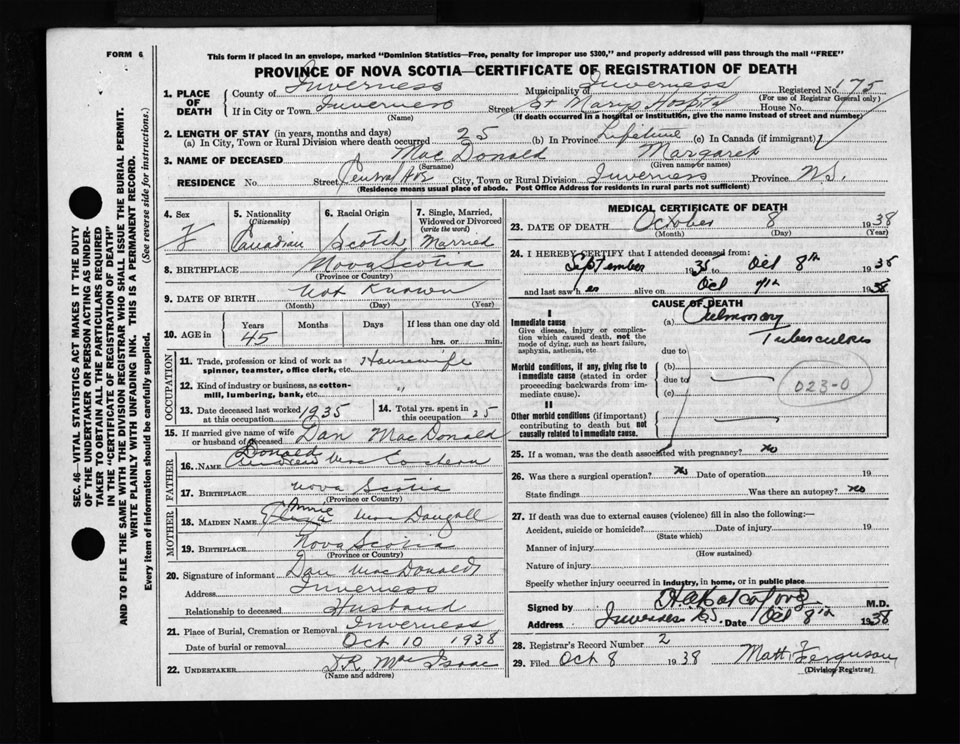 FORM 6
This form if placed in an envelope, marked "Dominion Statistics—Free, penalty for improper use $300," and properly addressed will pass through the mail "FREE"
PROVINCE OF NOVA SCOTIA—CERTIFICATE OF REGISTRATION OF DEATH
1. PLACE OF DEATH County of Inverness Municipality of Inverness Registered No. 175
(For use of Registrar General only)
If in City or Town Inverness Street St Marys Hospital House No.
(Name) (If death occurred in a hospital or institution, give the name instead of street and number)
2. LENGTH OF STAY (in years, months and days)
(a) In City, Town or Rural Division where death occurred 25 (b) In Province Lifetime (c) In Canada (if immigrant)
3. NAME OF DECEASED MacDonald Margaret
(Surname) (Given name or names)
RESIDENCE No. Street Central Ave City, Town or Rural Division Inverness Province N.S.
(Residence means usual place of abode. Post Office Address for residents in rural parts not sufficient)
4. Sex F
5. Nationality (Citizenship) Canadian
6. Racial Origin Scotch
7. Single, Married, Widowed or Divorced (write the word) Married
8. BIRTHPLACE Nova Scotia
(Province or Country)
9. DATE OF BIRTH Not Known
(Month) (Day) (Year)
10. AGE in Years 45 Months Days If less than one day old hrs. or min.
OCCUPATION
11. Trade, profession or kind of work as spinner, teamster, office clerk, etc. Housewife
12. Kind of industry or business, as cotton-mill, lumbering, bank, etc. "
13. Date deceased last worked at this occupation 1935
14. Total yrs. spent in this occupation 25
15. If married give name of wife or husband of deceased Dan MacDonald
FATHER
16. Name Donald
17. BIRTHPLACE Nova Scotia
(Province or Country)
MOTHER
18. MAIDEN NAME Annie MacDougall
19. BIRTHPLACE Nova Scotia
(Province or Country)
20. Signature of informant Dan MacDonald
Address Inverness
Relationship to deceased Husband
21. Place of Burial, Cremation or Removal Inverness
Date of burial or removal Oct 10 1938
22. UNDERTAKER D.R. MacIsaac
(Name and address)
MEDICAL CERTIFICATE OF DEATH
23. DATE OF DEATH October 8 1938
(Month) (Day) (Year)
24. I HEREBY CERTIFY that I attended deceased from:
September 1935 to Oct 8th 1938
and last saw her alive on Oct 7th 1938
CAUSE OF DEATH
I
Immediate cause
Give disease, injury or complication which caused death, not the mode of dying, such as heart failure, asphyxia, asthenia, etc.
(a) Pulmonary Tuberculosis
due to
Morbid conditions, if any, giving rise to immediate cause (stated in order proceeding backwards from immediate cause).
(b)
due to
(c)
023-0
II
Other morbid conditions (if important) contributing to death but not causally related to immediate cause.
25. If a woman, was the death associated with pregnancy? No
26. Was there a surgical operation? No Date of operation 19
State findings Was there an autopsy? No
27. If death was due to external causes (violence) fill in also the following:—
Accident, suicide or homicide? Date of injury 19
(State which)
Manner of injury
(How sustained)
Nature of injury
Specify whether injury occurred in industry, in home, or in public place
Signed by M.D.
Address Inverness N.S. Date Oct 8th 1938
28. Registrar's Record Number 2
29. Filed Oct 8 1938 Matt Ferguson
(Division Registrar)
SEC. 46—VITAL STATISTICS ACT MAKES IT THE DUTY OF THE UNDERTAKER OR PERSON ACTING AS UNDERTAKER TO OBTAIN ALL THE PARTICULARS REQUIRED IN THE "CERTIFICATE OF REGISTRATION OF DEATH"
AND TO FILE THE SAME WITH THE DIVISION REGISTRAR WHO SHALL ISSUE THE BURIAL PERMIT.
WRITE PLAINLY WITH UNFADING INK. THIS IS A PERMANENT RECORD.
Every item of information should be carefully supplied. (See reverse side for instructions.)